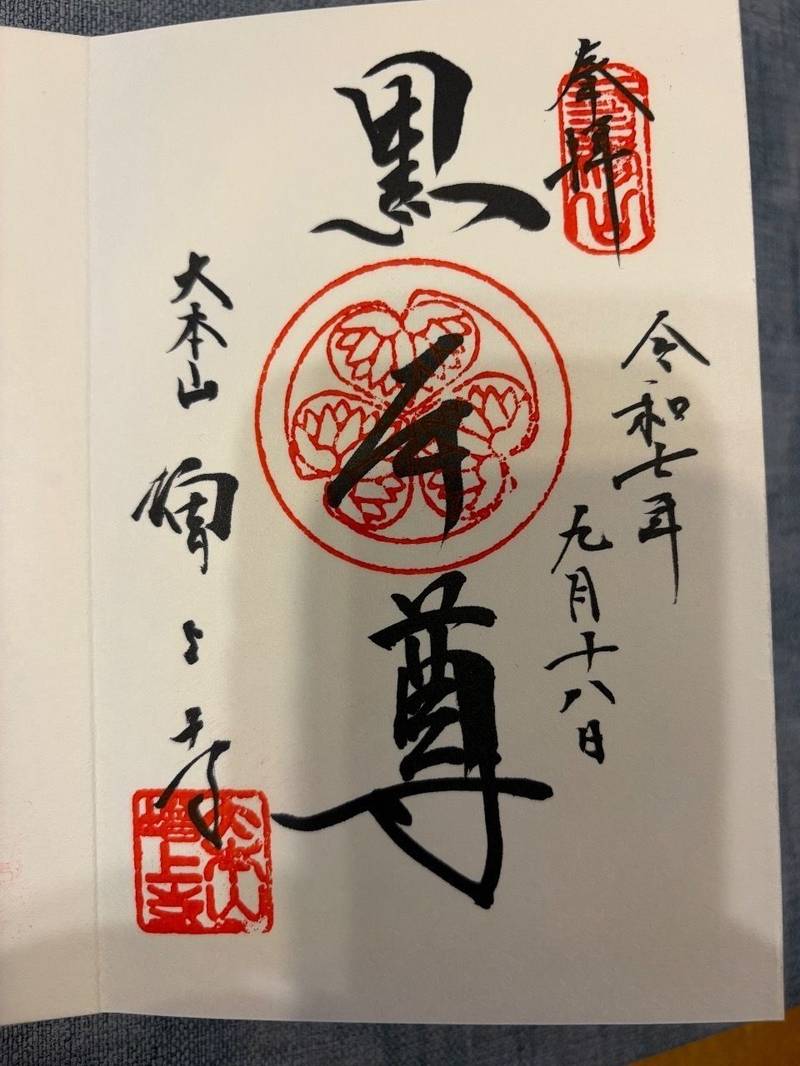 奉拝
三縁山
令和七年
九月十八日
黒本尊
大本山 増上寺
大本山
増上寺